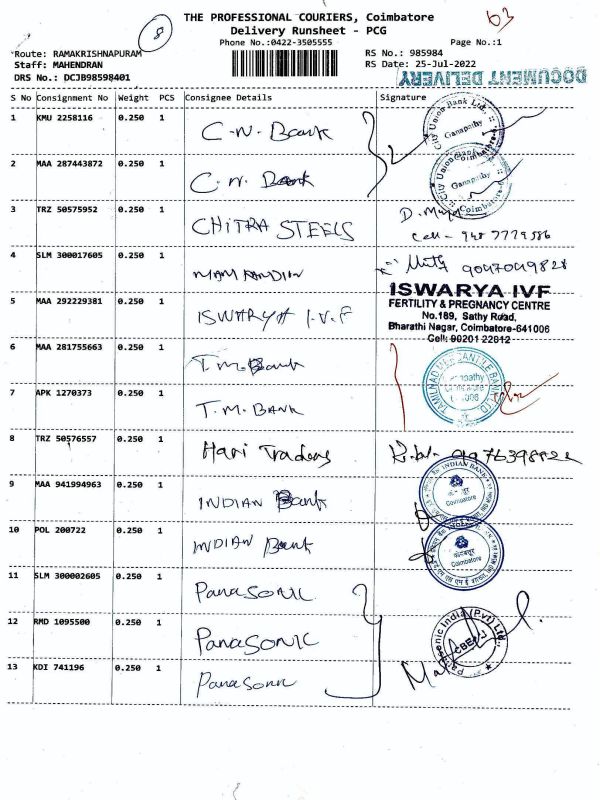 63
THE PROFESSIONAL COURIERS, Coimbatore
8
Delivery Runsheet - PCG
Phone No.:0422-3505555 Page No.:1
Route: RAMAKRISHNAPURAM RS No.: 985984
Staff: MAHENDRAN RS Date: 25-Jul-2022
DRS No.: DCJB98598401 DOCUMENT DELIVERY
S No Consignment No Weight PCS Consignee Details Signature
1 KMU 2258116 0.250 1 C.N. Bank City Union Bank Ltd., Ganapathy
2 MAA 287443872 0.250 1 C.N. Bank City Union Bank Ganapathy Coimbatore
3 TRZ 50575952 0.250 1 CHITRA STEELS D.
Cell- 948 7779586
4 SLM 300017605 0.250 1 9047049828
5 MAA 292229381 0.250 1 ISWARYA I.V.F ISWARYA IVF
FERTILITY & PREGNANCY CENTRE
No.189, Sathy Road,
Bharathi Nagar, Coimbatore-641006
Cell: 90201 22012
6 MAA 281755663 0.250 1 T.M.Bank TAMILNAD MERCANTILE BANK LTD.
7 APK 1270373 0.250 1 T.M.BANK
8 TRZ 50576557 0.250 1 Hari Traders
9 MAA 941994963 0.250 1 INDIAN Bank INDIAN BANK Coimbatore
10 POL 200722 0.250 1 INDIAN Bank Coimbatore
11 SLM 300002605 0.250 1 PanaSONIC
12 RMD 1095500 0.250 1 PanaSONIC Panasonic India (Pvt) Ltd., CBE
13 KDI 741196 0.250 1 Panasonic